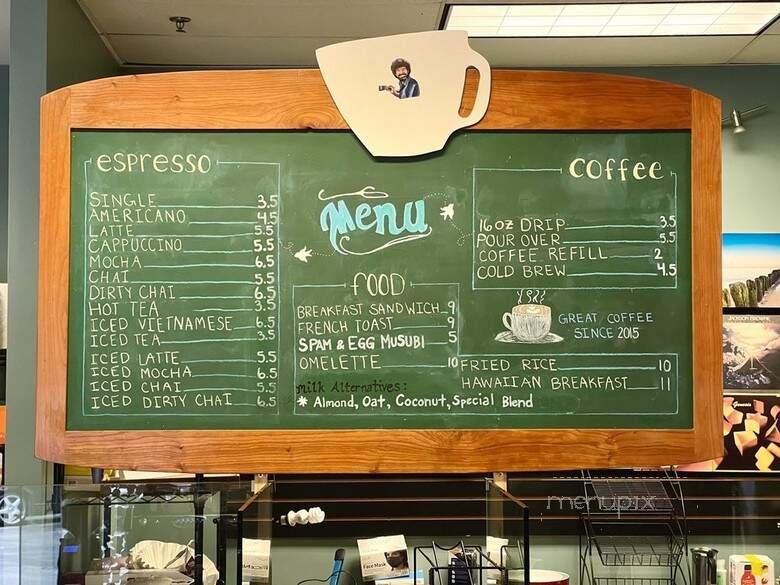 espresso
SINGLE 3.5
AMERICANO 4.5
LATTE 5.5
CAPPUCCINO 5.5
MOCHA 6.5
CHAI 5.5
DIRTY CHAI 6.5
HOT TEA 3.5
ICED VIETNAMESE 6.5
ICED TEA 3.5
ICED LATTE 5.5
ICED MOCHA 6.5
ICED CHAI 5.5
ICED DIRTY CHAI 6.5
Menu
FOOD
BREAKFAST SANDWICH 9
FRENCH TOAST 9
SPAM & EGG MUSUBI 5
OMELETTE 10
FRIED RICE 10
HAWAIIAN BREAKFAST 11
Milk Alternatives:
* Almond, Oat, Coconut, Special Blend
coffee
16 OZ DRIP 3.5
POUR OVER 5.5
COFFEE REFILL 2
COLD BREW 4.5
GREAT COFFEE
SINCE 2015
JACKSON BROWNE
Genesis
menupix
Face Mask